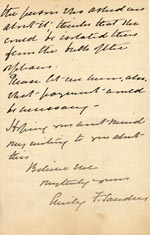 the person who asked me
about it thinks that she
could be isolated there
from the bulk of the
orphans.
Please let me know, also,
what payment would
be necessary –
Hoping you will mind
my writing to you about
this
Believe me
truly yours
Emily F. Sanders